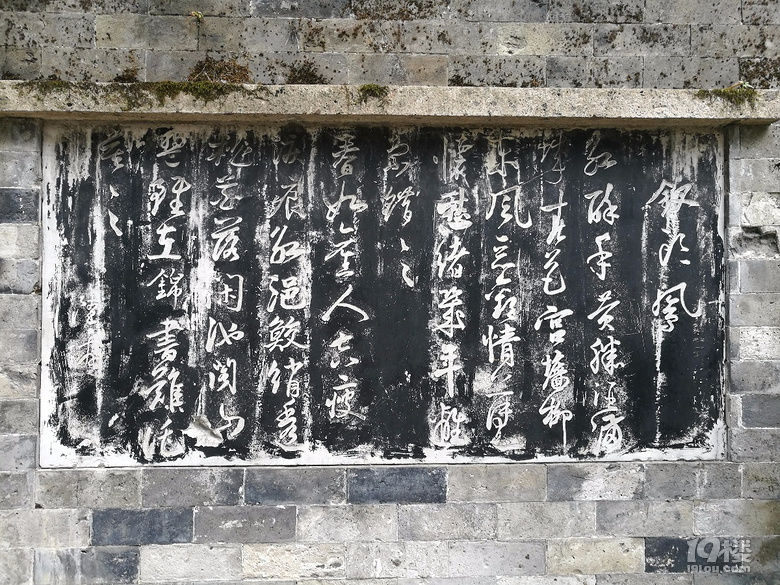 釵頭鳳
紅酥手黄縢酒滿
城春色宫墻柳
東風惡歡情薄一
懷愁緒幾年離
索錯々々
春如舊人空瘦
淚痕紅浥鮫綃透
桃花落閑池閣山
盟雖在錦書難託
莫々々
19楼
19lou.com